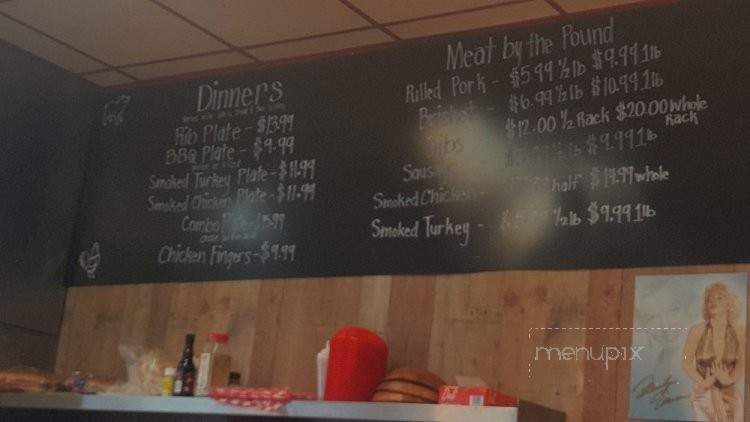 Dinners
Rib Plate - $13.99
BBQ Plate - $9.99
Smoked Turkey Plate - $11.99
Smoked Chicken Plate - $11.99
Combo
Chicken Fingers - $9.99
Meat by the Pound
Pulled Pork - $5.99 ½ lb $9.99 1lb
Brisket $6.99 ½ lb $10.99 1lb
Ribs $12.00 ½ Rack $20.00 Whole Rack
½ lb $9.99 1lb
Smoked Chicken half $14.99 whole
Smoked Turkey - ½ lb $9.99 1lb
menupix